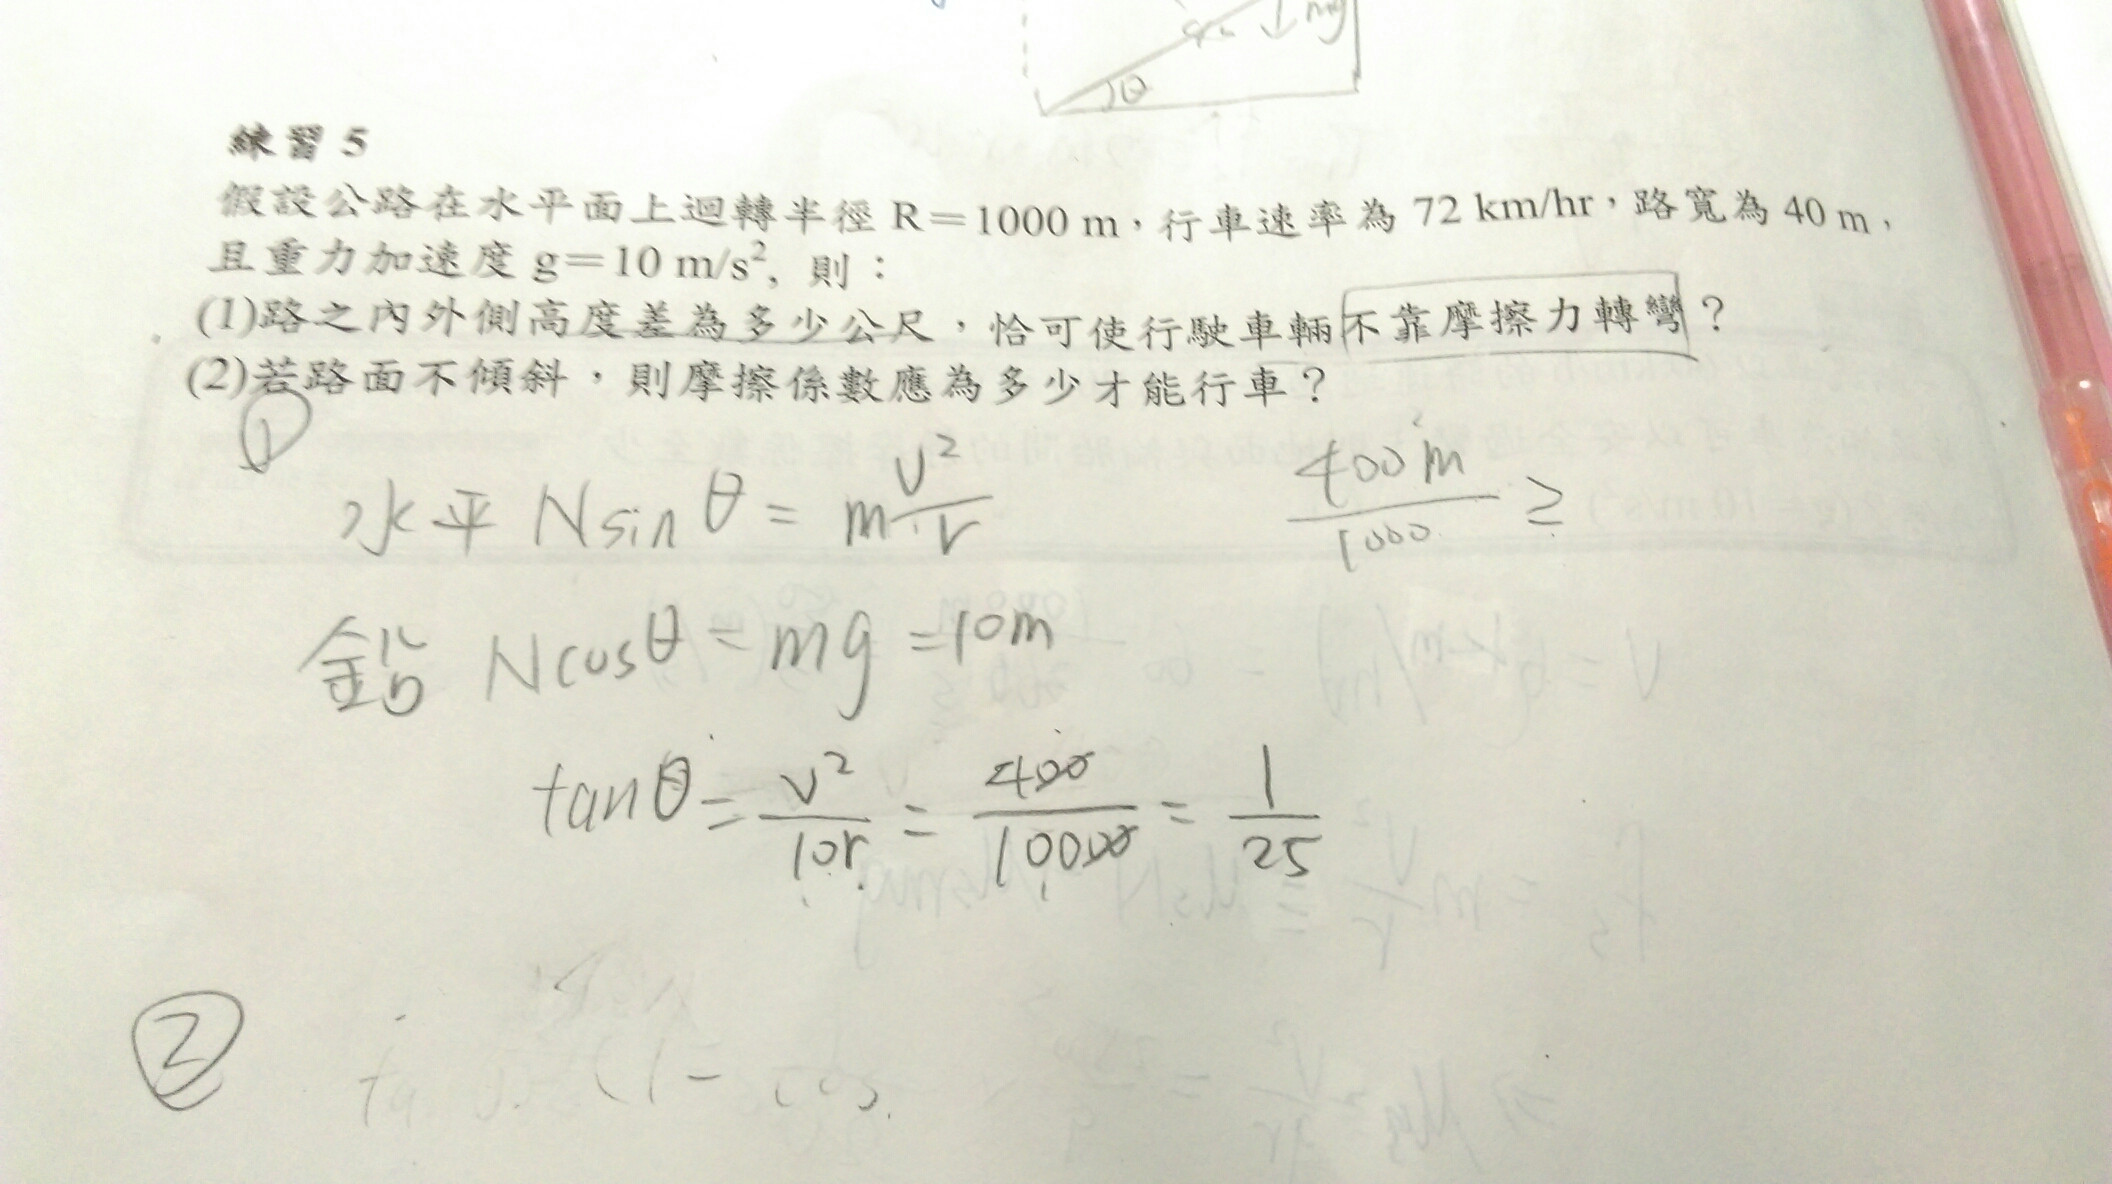 mg
θ
練習 5
假設公路在水平面上迴轉半徑 R=1000 m，行車速率為 72 km/hr，路寬為 40 m，
且重力加速度 g=10 m/s², 則：
(1)路之內外側高度差為多少公尺，恰可使行駛車輛不靠摩擦力轉彎？
(2)若路面不傾斜，則摩擦係數應為多少才能行車？
①
水平 N sinθ = m v²/r
400m/1000 ≥
鉛 N cosθ = mg = 10m
tanθ = v²/10r = 400/10000 = 1/25
②